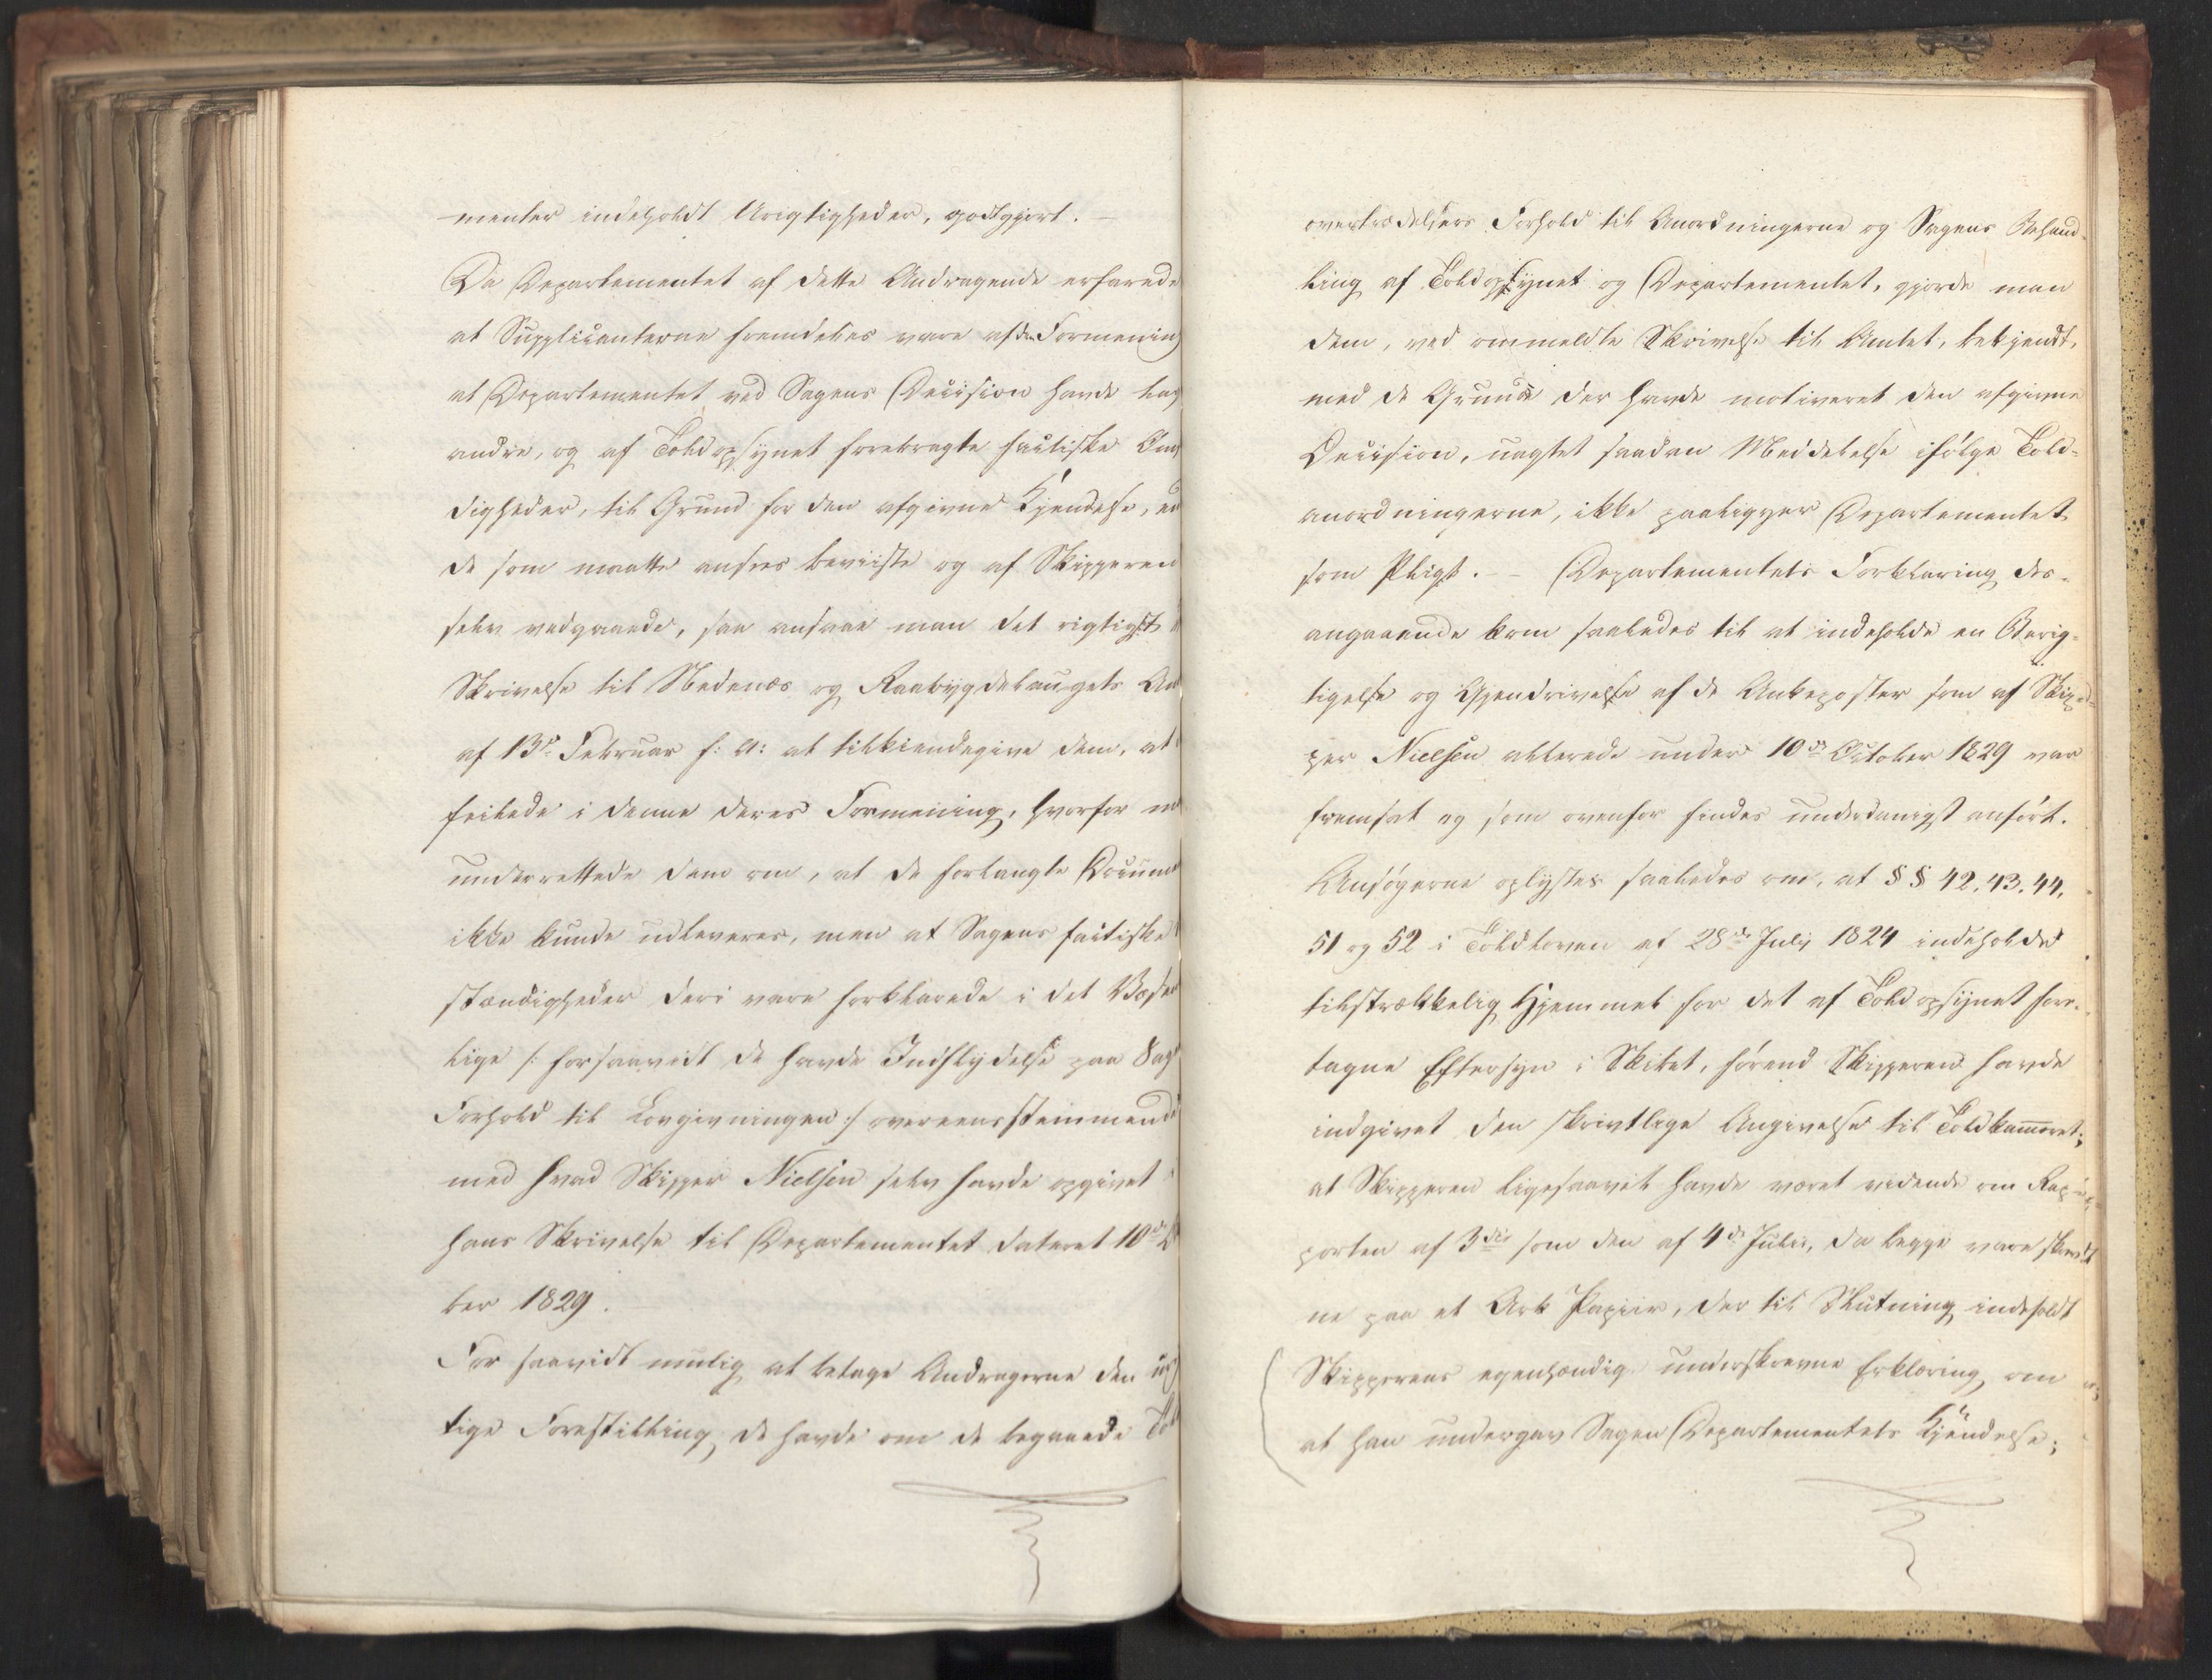 -menter indeholdt Urigtigheder, godtgjort. -
Da Departementet af dette Andragende erfarede
at Supplicanterne fremdeles vare af den Formening
at Departementet ved Sagens Decision havde lag
andre, og af Toldopsynet forebragte factiske Om
digheder, til Grund for den afgivne Kjendelse, en
de som maatte ansees beviiste og af Skipperen
selv vedgaaede, saa ansaae man det rigtigst i
Skrivelse til Nedenæs og Raabygdelaugets Am
af 13de Februar f: A: at tilkiendegive dem, at
feilede i denne deres Formening, hvorfor m
underrettede dem om, at de forlangte Docum
ikke kunde udleveres, men at Sagens factiske
stændigheder deri vare forklarede i det Væsen
lige /: forsaavidt de havde Indflydelse paa Sag
Forhold til Lovgivningen :/ overeensstemmende
med hvad Skipper Nielsen selv havde opgivet i
hans Skrivelse til Departementet dateret 10de
ber 1829.
For saavidt mulig at betage Andragerne den
tige Forestilling, de havde om de begaaede Tol
overtrædelsers Forhold til Anordningerne og Sagens Behand-
ling af Toldopsynet og Departementet, gjorde man
dem, ved ommeldte Skrivelse til Amtet, bekjendt,
med de Grunde der havde motiveret den afgivne
Decision, uagtet saadan Meddelelse ifølge Told-
anordningerne, ikke paaligger Departementet
som Pligt. - Departementets Forklaring des-
angaaende kom saaledes til at indeholde en Berig-
tigelse og Gjendrivelse af de Ankeposter som af Skip-
per Nielsen allerede under 10de October 1829 var
fremsat og som ovenfor findes underdanigst anført.
Ansøgerne oplystes saaledes om, at §§ 42. 43. 44.
51 og 52 i Toldloven af 28de July 1824 indeholde
tilstrækkelig Hjemmel for det af Toldopsynet fore-
tagne Eftersyn i Skibet, førend Skipperen havde
indgivet den skrivtlige Angivelse til Toldkammeret;
at Skipperen ligesaavel havde været vidende om Rap-
porten af 3die som den af 4de Julii, da begge vare skrev
ne paa et Ark Papiir, der til Slutning indeholdt
Skipperens egenhændig underskrevne Erklæring om
at han undergav Sagen Departementets Kjendelse;